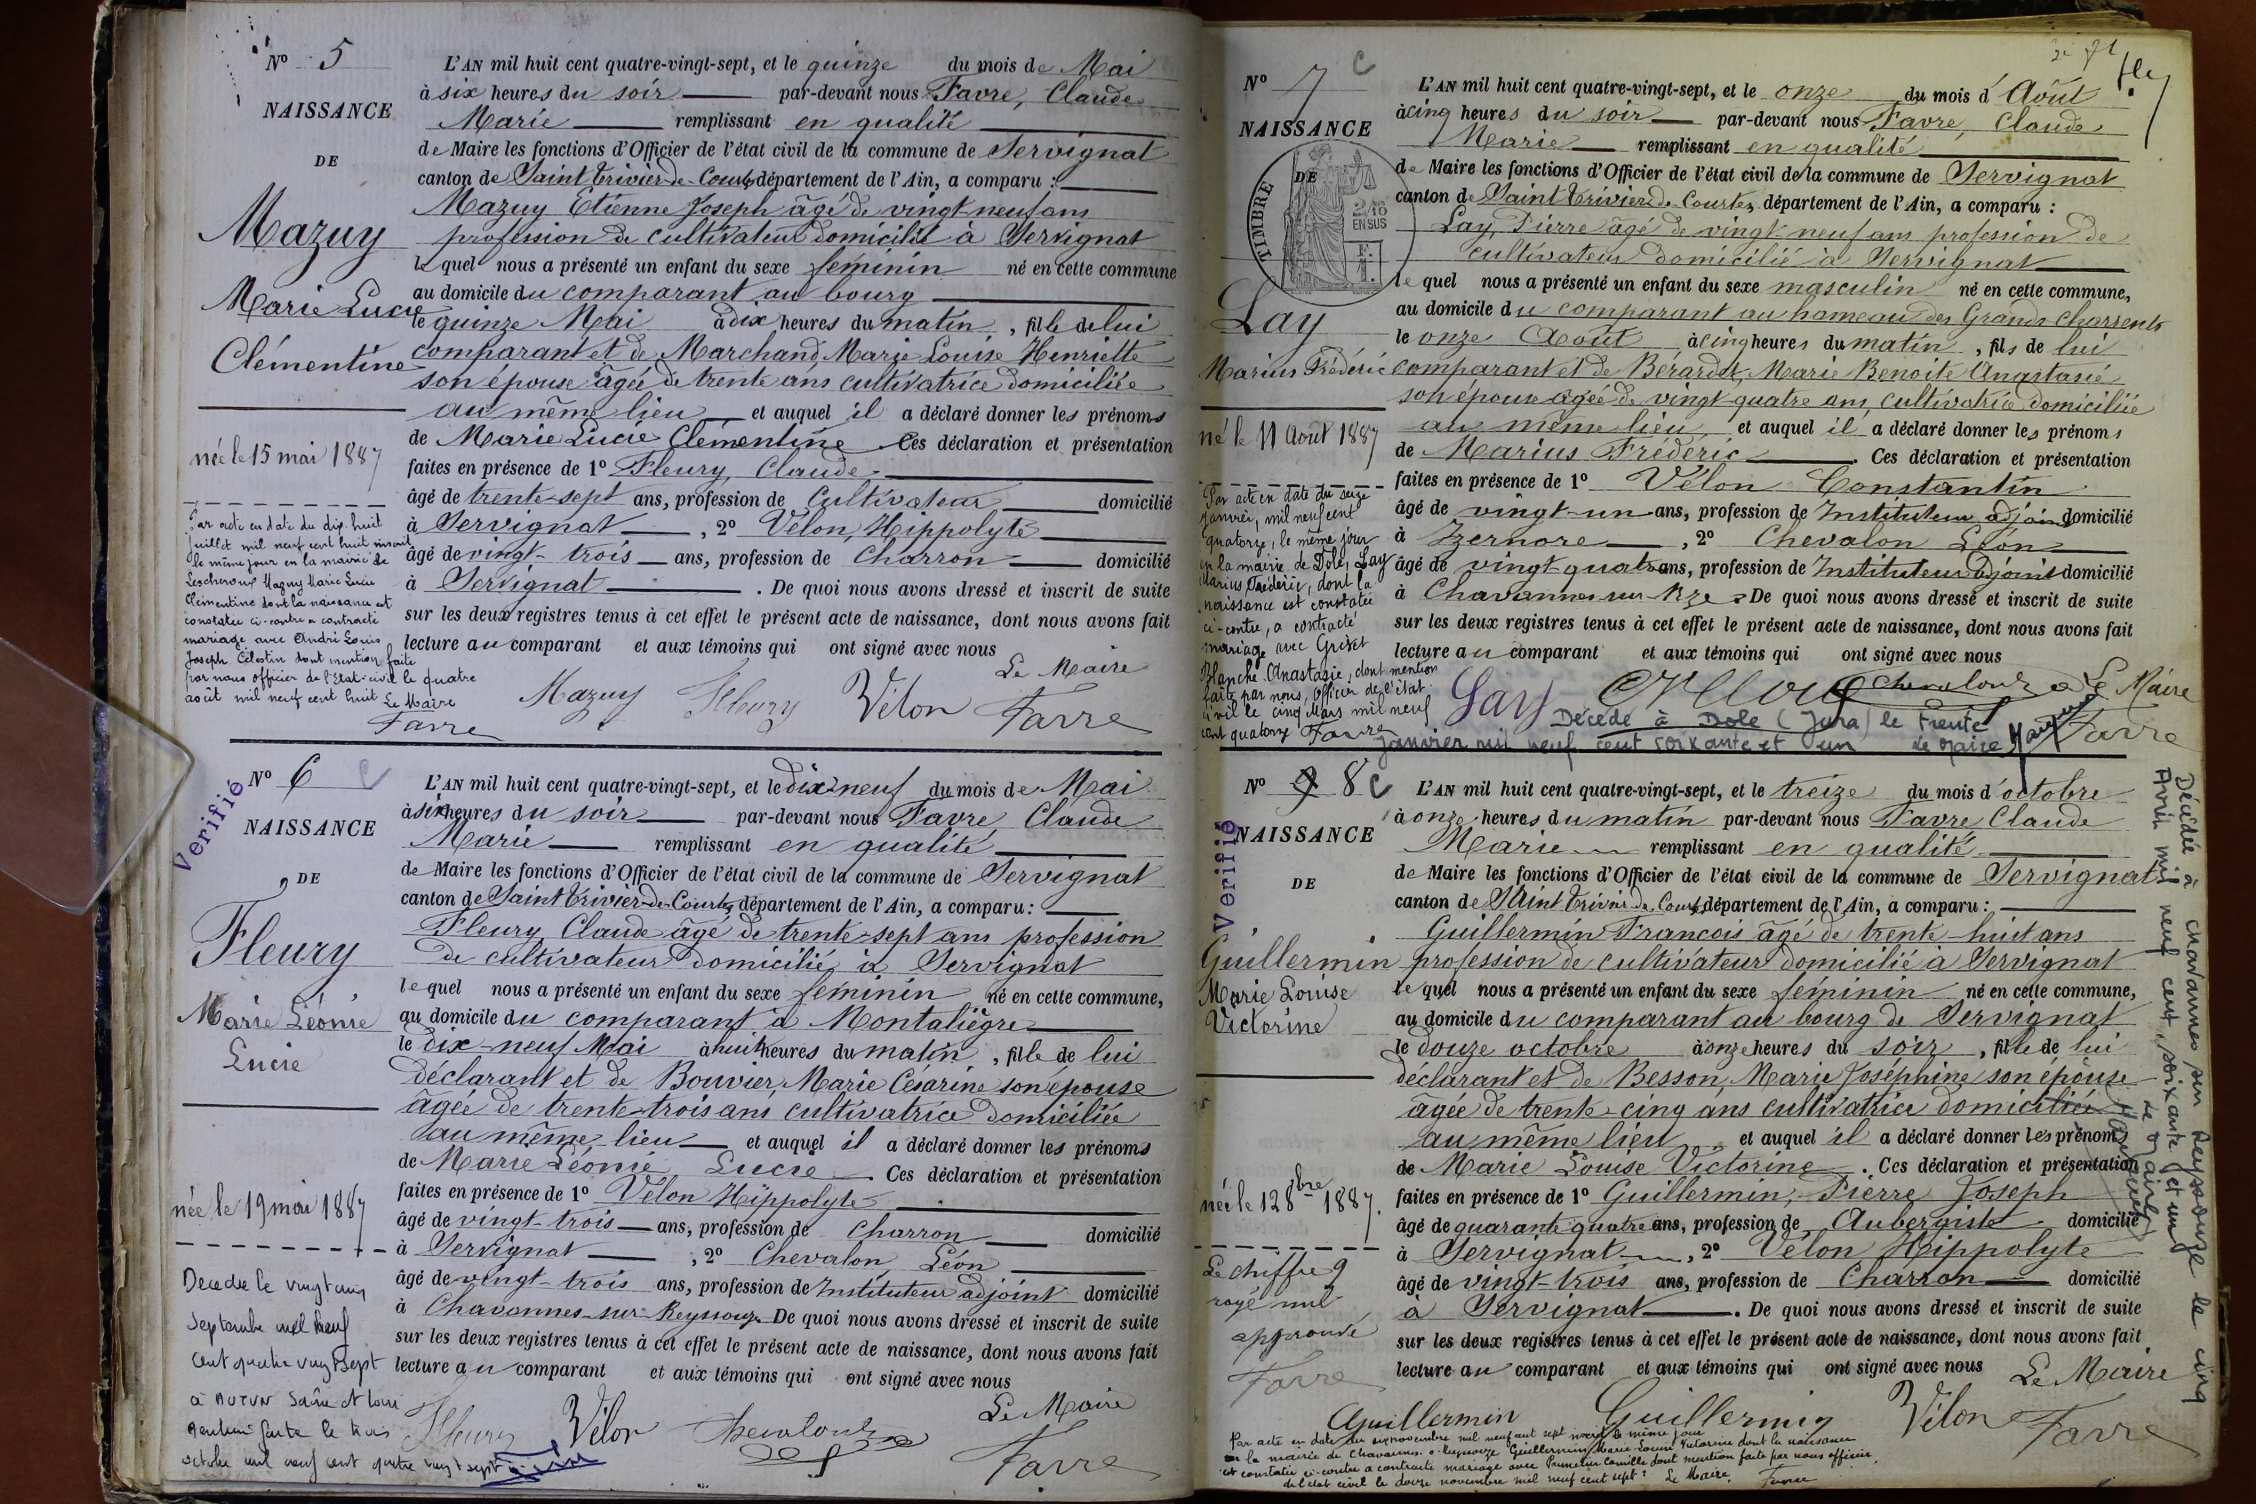 N° 5
NAISSANCE
DE
Mazuy
Marie Lucie
Clémentine
née le 15 mai 1887
Par acte en date du dix-huit
juillet mil neuf cent huit inscrit
le même jour en la mairie de
Lescheroux Mazuy Marie Lucie
Clémentine dont la naissance est
constatée ci-contre a contracté
mariage avec André Louis
Joseph Célestin dont mention faite
par nous officier de l'Etat-civil le quatre
août mil neuf cent huit Le Maire
Favre
L'AN mil huit cent quatre-vingt-sept, et le quinze du mois de Mai
à six heures du soir par-devant nous Favre, Claude
Marie remplissant en qualité
de Maire les fonctions d'Officier de l'état civil de la commune de Servignat
canton de Saint Trivier-de-Courtes département de l'Ain, a comparu :
Mazuy Etienne Joseph âgé de vingt-neuf ans
profession de cultivateur domicilié à Servignat
lequel nous a présenté un enfant du sexe féminin né en cette commune
au domicile du comparant au bourg
le quinze Mai à dix heures du matin, fille de lui
comparant et de Marchand, Marie Louise Henriette
son épouse âgée de trente ans cultivatrice domiciliée
au même lieu et auquel il a déclaré donner les prénoms
de Marie Lucie Clémentine Ces déclaration et présentation
faites en présence de 1° Fleury, Claude
âgé de trente-sept ans, profession de Cultivateur domicilié
à Servignat, 2° Vélon, Hippolyte
âgé de vingt-trois ans, profession de Charron domicilié
à Servignat. De quoi nous avons dressé et inscrit de suite
sur les deux registres tenus à cet effet le présent acte de naissance, dont nous avons fait
lecture au comparant et aux témoins qui ont signé avec nous
Le Maire
Mazuy Fleury Vélon Favre
N° 6 C
Verifié
NAISSANCE
DE
Fleury
Marie Léonie
Lucie
née le 19 mai 1887
Decedée le vingt cinq
septembre mil neuf
cent quatre vingt sept
à AUTUN Saône et Loire
mention faite le trois
octobre mil neuf cent quatre vingt sept
L'AN mil huit cent quatre-vingt-sept, et le dix-neuf du mois de Mai
à six heures du soir par-devant nous Favre, Claude
Marie remplissant en qualité
de Maire les fonctions d'Officier de l'état civil de la commune de Servignat
canton de Saint Trivier-de-Courtes département de l'Ain, a comparu :
Fleury, Claude âgé de trente-sept ans profession
de cultivateur domicilié à Servignat
lequel nous a présenté un enfant du sexe féminin né en cette commune,
au domicile du comparant à Montaliègre
le dix-neuf Mai à huit heures du matin, fille de lui
déclarant et de Bouvier, Marie Césarine son épouse
âgée de trente-trois ans cultivatrice domiciliée
au même lieu et auquel il a déclaré donner les prénoms
de Marie Léonie Lucie. Ces déclaration et présentation
faites en présence de 1° Vélon Hippolyte
âgé de vingt-trois ans, profession de Charron domicilié
à Servignat, 2° Chevalon, Léon
âgé de vingt-trois ans, profession de Instituteur adjoint domicilié
à Chavannes-sur-Reyssouze De quoi nous avons dressé et inscrit de suite
sur les deux registres tenus à cet effet le présent acte de naissance, dont nous avons fait
lecture au comparant et aux témoins qui ont signé avec nous
Le Maire
Fleury Vélon Chevalon Favre
N° 7 C
NAISSANCE
DE
TIMBRE
2/10
EN SUS
Lay
Marius Frédéric
né le 11 Août 1887
Par acte en date du seize
janvier, mil neuf cent
quatorze, le même jour
en la mairie de Dole, Lay
Marius Frédéric, dont la
naissance est constatée
ci-contre, a contracté
mariage avec Grezet
Blanche Anastasie, dont mention
faite par nous, officier de l'état
civil le cinq Mars mil neuf
cent quatorze Favre
L'AN mil huit cent quatre-vingt-sept, et le onze du mois d'Août
à cinq heures du soir par-devant nous Favre, Claude
Marie remplissant en qualité
de Maire les fonctions d'Officier de l'état civil de la commune de Servignat
canton de Saint Trivier-de-Courtes département de l'Ain, a comparu :
Lay, Pierre âgé de vingt-neuf ans profession de
cultivateur domicilié à Servignat
lequel nous a présenté un enfant du sexe masculin né en cette commune,
au domicile du comparant au hameau des Grands Charrents
le onze Août à cinq heures du matin, fils de lui
comparant et de Bérardet, Marie Benoite Anastasie
son épouse âgée de vingt-quatre ans, cultivatrice domiciliée
au même lieu et auquel il a déclaré donner les prénoms
de Marius Frédéric. Ces déclaration et présentation
faites en présence de 1° Vélon Constantin
âgé de vingt-un ans, profession de Instituteur adjoint domicilié
à Izernore, 2° Chevalon Léon
âgé de vingt-quatre ans, profession de Instituteur Adjoint domicilié
à Chavannes-sur-Rze. De quoi nous avons dressé et inscrit de suite
sur les deux registres tenus à cet effet le présent acte de naissance, dont nous avons fait
lecture au comparant et aux témoins qui ont signé avec nous
Lay Chevalon Le Maire
Favre
Décédé à Dole (Jura) le trente
janvier mil neuf cent soixante et un le maire
N° 9 8 C
Verifié
NAISSANCE
DE
Guillermin
Marie Louise
Victorine
née le 12 8bre 1887.
Le chiffre 9
rayé nul
approuvé
Favre
L'AN mil huit cent quatre-vingt-sept, et le treize du mois d'octobre
à onze heures du matin par-devant nous Favre, Claude
Marie remplissant en qualité
de Maire les fonctions d'Officier de l'état civil de la commune de Servignat
canton de Saint Trivier-de-Courtes département de l'Ain, a comparu :
Guillermin Francois âgé de trente-huit ans
profession de cultivateur domicilié à Servignat
lequel nous a présenté un enfant du sexe féminin né en cette commune,
au domicile du comparant au bourg de Servignat
le douze octobre à onze heures du soir, fille de lui
déclarant et de Besson, Marie Joséphine son épouse
âgée de trente-cinq ans cultivatrice domiciliée
au même lieu et auquel il a déclaré donner les prénoms
de Marie Louise Victorine. Ces déclaration et présentation
faites en présence de 1° Guillermin, Pierre Joseph
âgé de quarante quatre ans, profession de Aubergiste domicilié
à Servignat, 2° Vélon Hippolyte
âgé de vingt-trois ans, profession de Charron domicilié
à Servignat. De quoi nous avons dressé et inscrit de suite
sur les deux registres tenus à cet effet le présent acte de naissance, dont nous avons fait
lecture au comparant et aux témoins qui ont signé avec nous
Le Maire
Guillermin Guillermin Vélon Favre
Par acte en date du six novembre mil neuf cent sept inscrit le même jour
en la mairie de Chavannes-s-Reyssouze Guillermin Marie-Louise Victorine dont la naissance
est constatée ci-contre a contracté mariage avec Camille dont mention faite par nous officier
de l'état civil le douze novembre mil neuf cent sept. Le Maire, Favre
Décédée à Chavannes sur Reyssouze le cinq
Avril mil neuf cent soixante et un
Le Maire